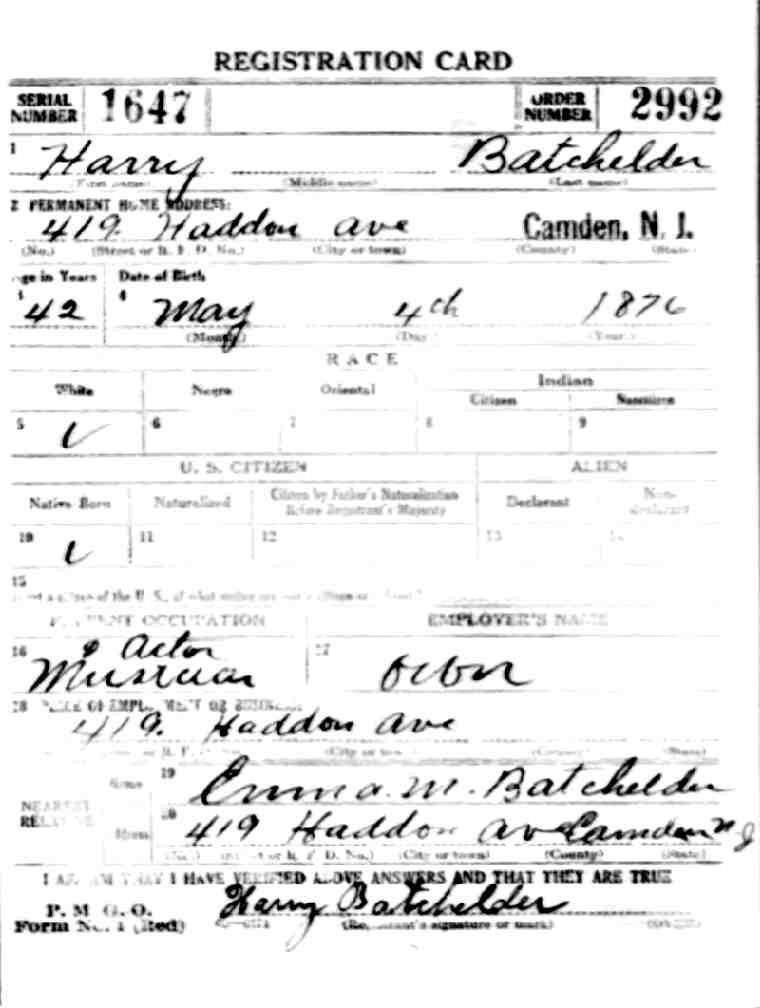 REGISTRATION CARD
SERIAL NUMBER 1647 ORDER NUMBER 2992
1 Harry Batchelder
(First name) (Middle name) (Last name)
2 PERMANENT HOME ADDRESS:
419 Haddon Ave Camden, N. J.
(No.) (Street or R. F. D. No.) (City or town) (County) (State)
Age in Years Date of Birth
3 42 4 May 4th 1876
(Month) (Day) (Year)
RACE
White Negro Oriental Indian
Citizen Noncitizen
5 ✓ 6 7 8 9
U. S. CITIZEN ALIEN
Native Born Naturalized Citizen by Father's Naturalization Before Registrant's Majority Declarant Non-declarant
10 ✓ 11 12 13 14
15
not a citizen of the U. S., of what nation are you a citizen or
PRESENT OCCUPATION EMPLOYER'S NAME
16 & Actor 17
Musician Own
18 PLACE OF EMPLOYMENT OR BUSINESS:
419 Haddon Ave
(City or town) (County) (State)
NEAREST RELATIVE Name 19 Emma. M. Batchelder
Address 20 419 Haddon Av Camden N J
(No.) (Street or R. F. D. No.) (City or town) (County) (State)
I AFFIRM THAT I HAVE VERIFIED ABOVE ANSWERS AND THAT THEY ARE TRUE
P. M. G. O.
Form No. 1 (Red) Harry Batchelder
(Registrant's signature or mark) (OVER)